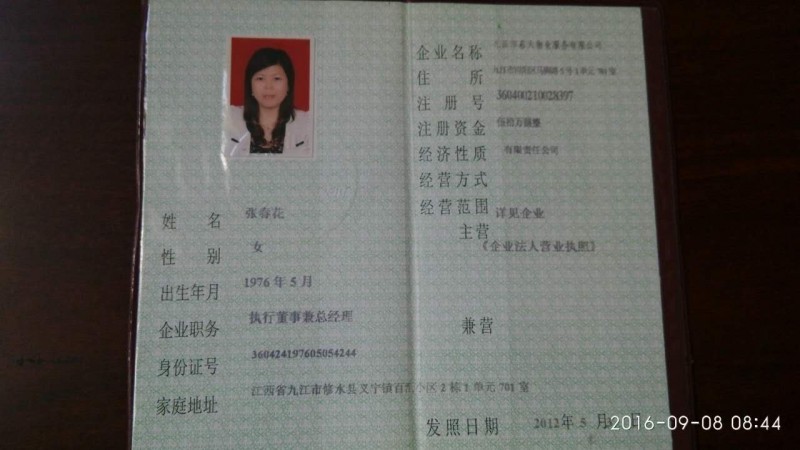 姓 名 张春花
性 别 女
出生年月 1976 年 5 月
企业职务 执行董事兼总经理
身份证号 360424197605054244
家庭地址 江西省九江市修水县义宁镇百 小区 2 栋 1 单元 701 室
企业名称 物业服务有限公司
住 所 号 1 单元 701 室
注 册 号 360400210028397
注册资金 伍拾万元整
经济性质 有限责任公司
经营方式
经营范围 详见企业
主营 《企业法人营业执照》
兼营
发照日期 2012年 5 月
2016-09-08 08:44